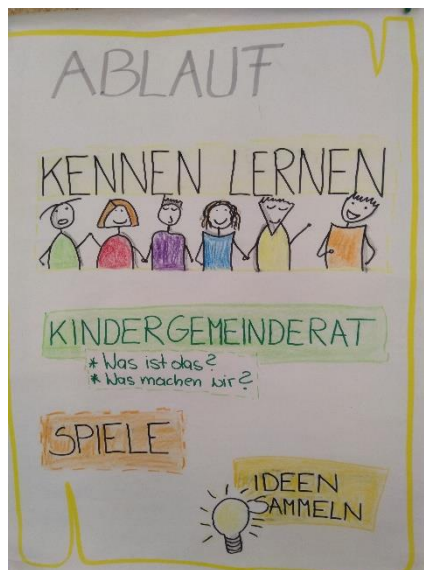 ABLAUF
KENNEN LERNEN
KINDERGEMEINDERAT
* Was ist das?
* Was machen wir?
SPIELE
IDEEN
SAMMELN